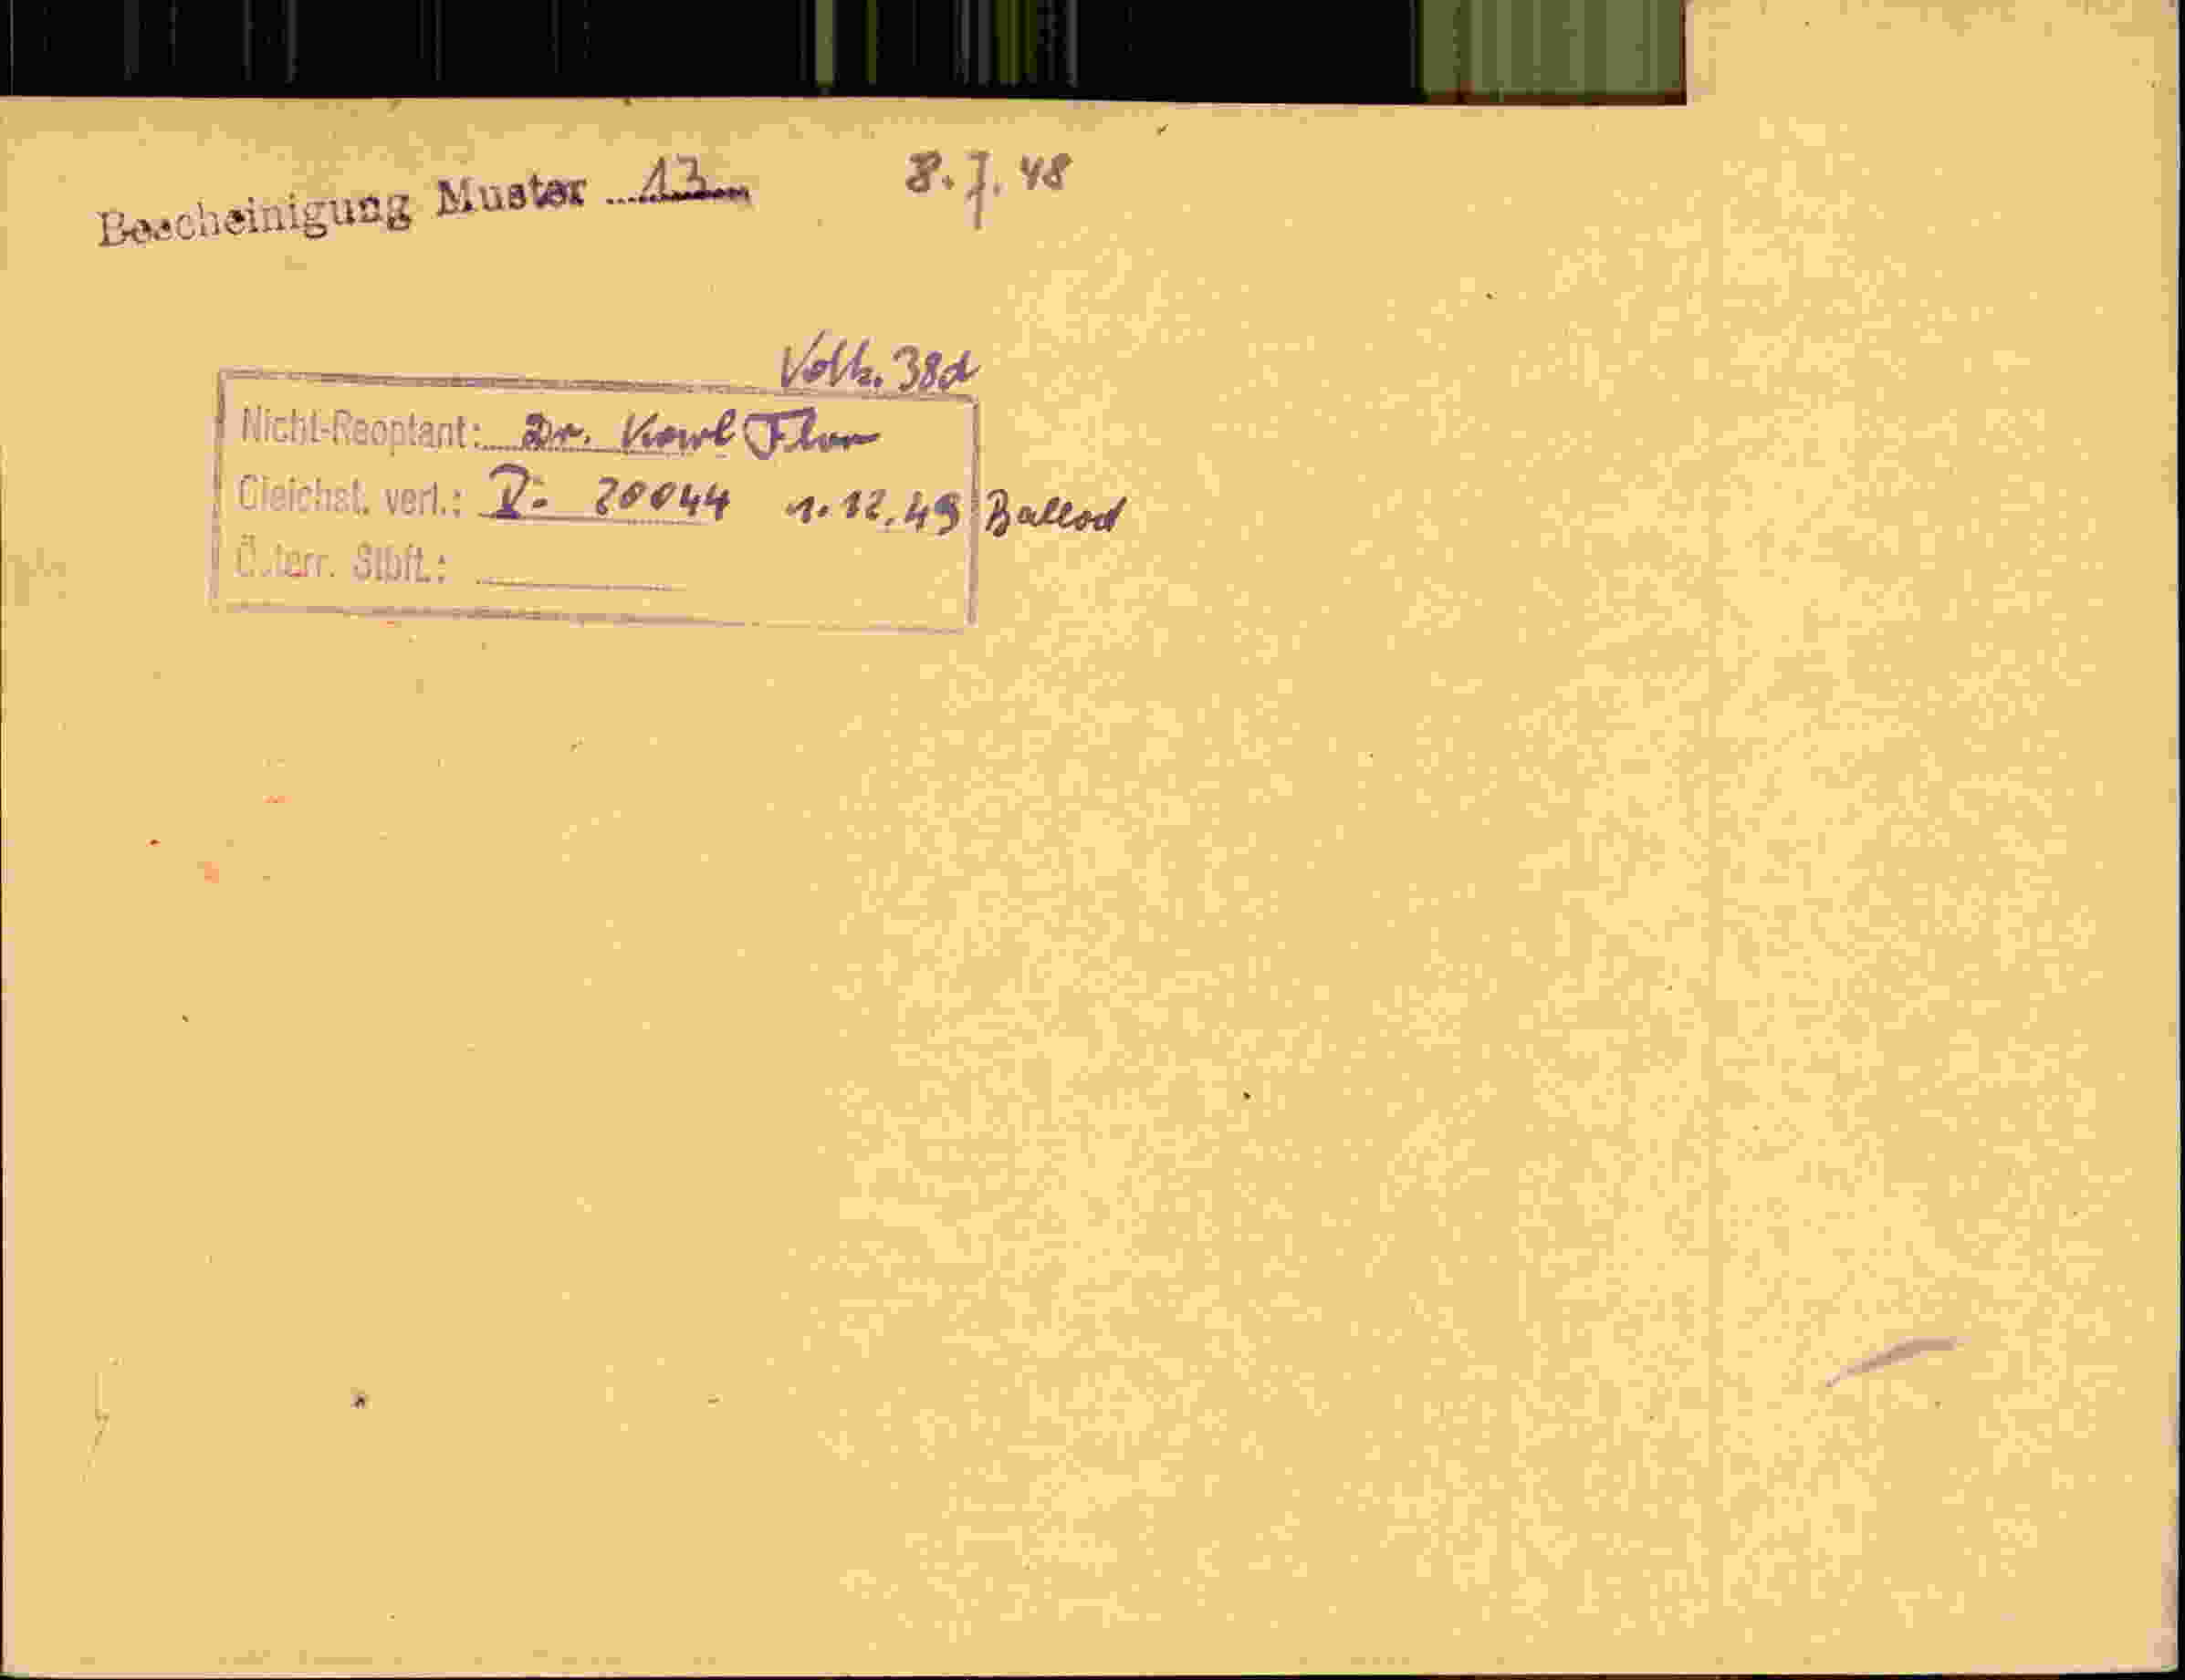 Bescheinigung Muster 13
8.7.48
Volk. 38d
Nicht-Reoptant: Dr. Karl Flor
Gleichst. verl.: V: 20044 1.12.49 Ballod
Österr. Stbft.: